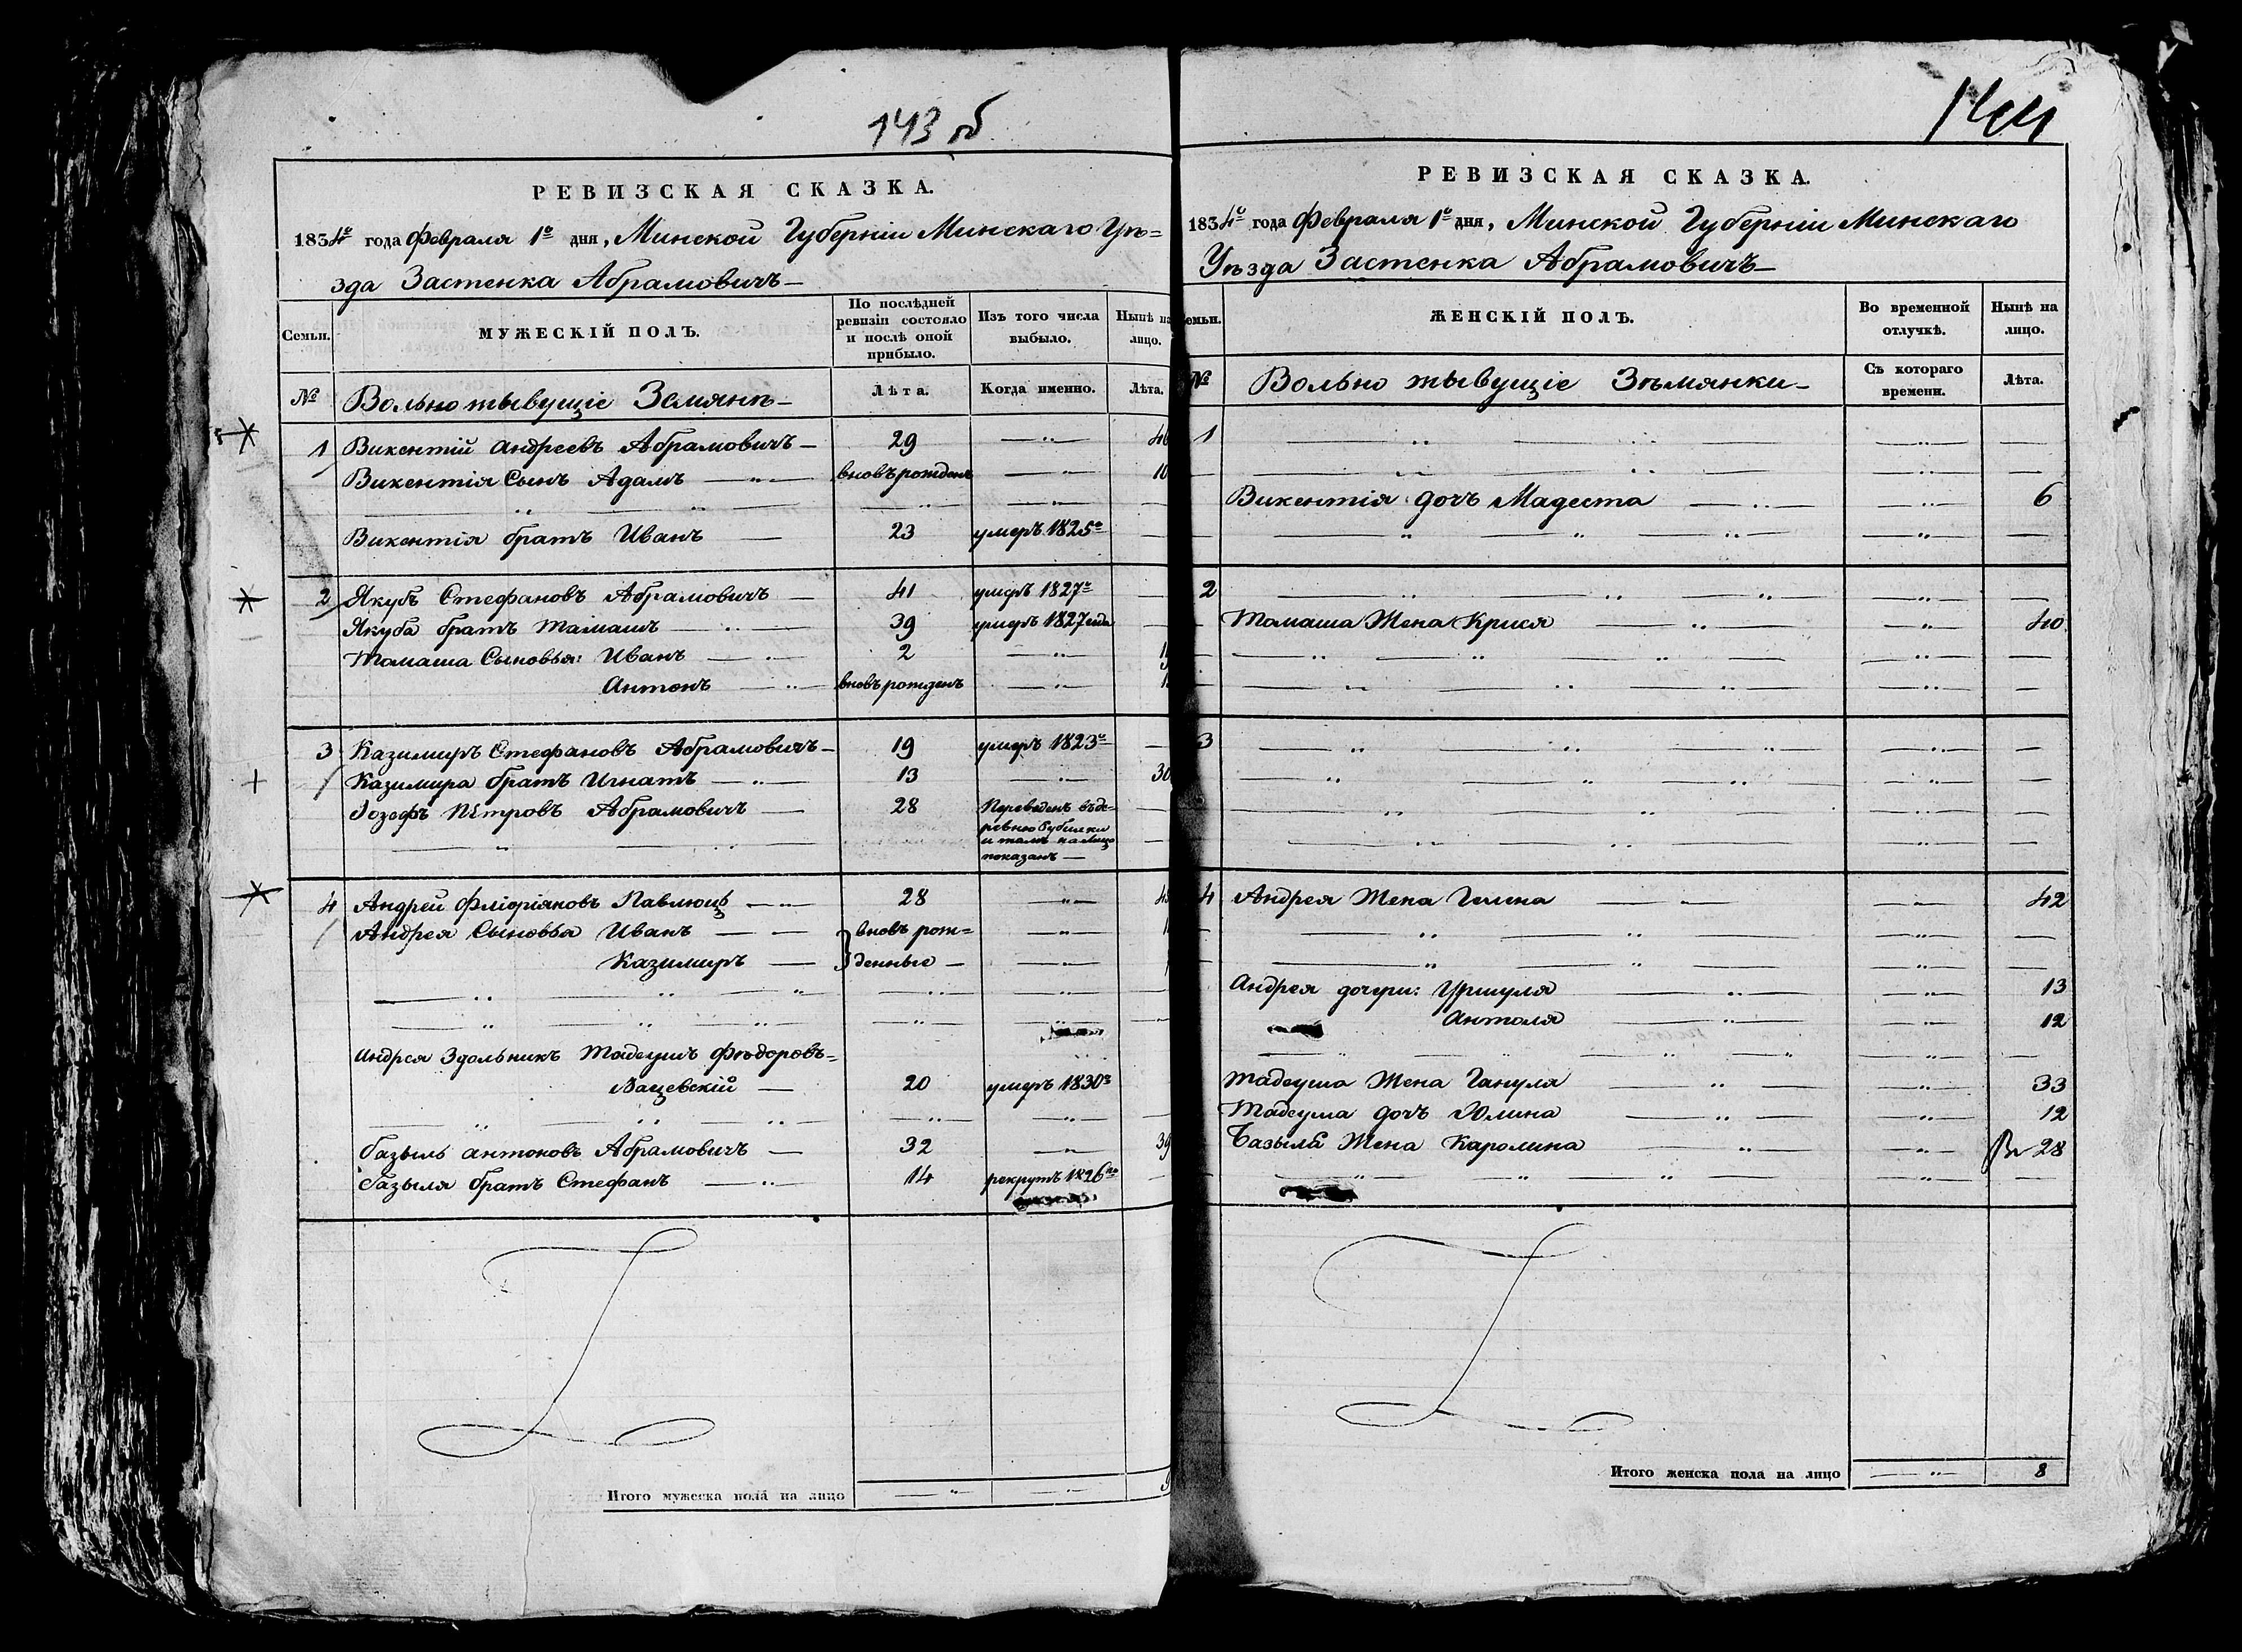 143 об
РЕВИЗСКАЯ СКАЗКА.
1834го года Февраля 1го дня, Минской Губерніи Минскаго Уѣ=
зда Застенка Абрамовичъ—
Семьи. МУЖЕСКІЙ ПОЛЪ. По послѣдней ревизіи состояло и послѣ оной прибыло. Изъ того числа выбыло. Нынѣ на лицо.
№ Вольно жывущіе Земянѣ— Лѣта. Когда именно. Лѣта.
1 Викентій Андреевъ Абрамовичъ— 29
Викентія Сынъ Адамъ вновь рожденъ 10
Викентія братъ Иванъ 23 умеръ 1825го
2 Якубъ Стефановъ Абрамовичъ 41 умеръ 1827го
Якуба братъ Тамашъ 39 умеръ 1827 года
Томаша Сыновья: Иванъ 2
Антонъ вновь рожденъ
3 Казимиръ Стефановъ Абрамовичъ— 19 умеръ 1823го
Казимира братъ Игнатъ 13 30
Іозефъ Петровъ Абрамовичъ 28 Переведенъ въ де=
ревню
и тамъ на лицо
показанъ—
4 Андрей Фліоріяновъ Павлюць 28
Андрея Сыновья Иванъ вновь рож=
Казимиръ денные—
Андрея Здольникъ Тадеушъ Фѣодоровъ=
Вацевскій 20 умеръ 1830го
Базыль Антоновъ Абрамовичъ 32 39
Базыля братъ Стефанъ 14 рекрутъ 1826го
Итого мужеска пола на лицо 9
144
РЕВИЗСКАЯ СКАЗКА.
1834го года Февраля 1го дня, Минской Губерніи Минскаго
Уѣзда Застенка Абрамовичъ—
Семьи. ЖЕНСКІЙ ПОЛЪ. Во временной отлучкѣ. Нынѣ на лицо.
№ Вольно жывущіе Зѣмянки— Съ котораго времени. Лѣта.
1
Викентія дочъ Мадеста 6
2
Томаша Жена Крися 40
3
4 Андрея Жена Гелена 42
Андрея дочери: Уршуля 13
Антоля 12
Тадеуша Жена Гануля 33
Тадеуша дочъ Юлина 12
Базыля Жена Каролина 28
Итого женска пола на лицо 8